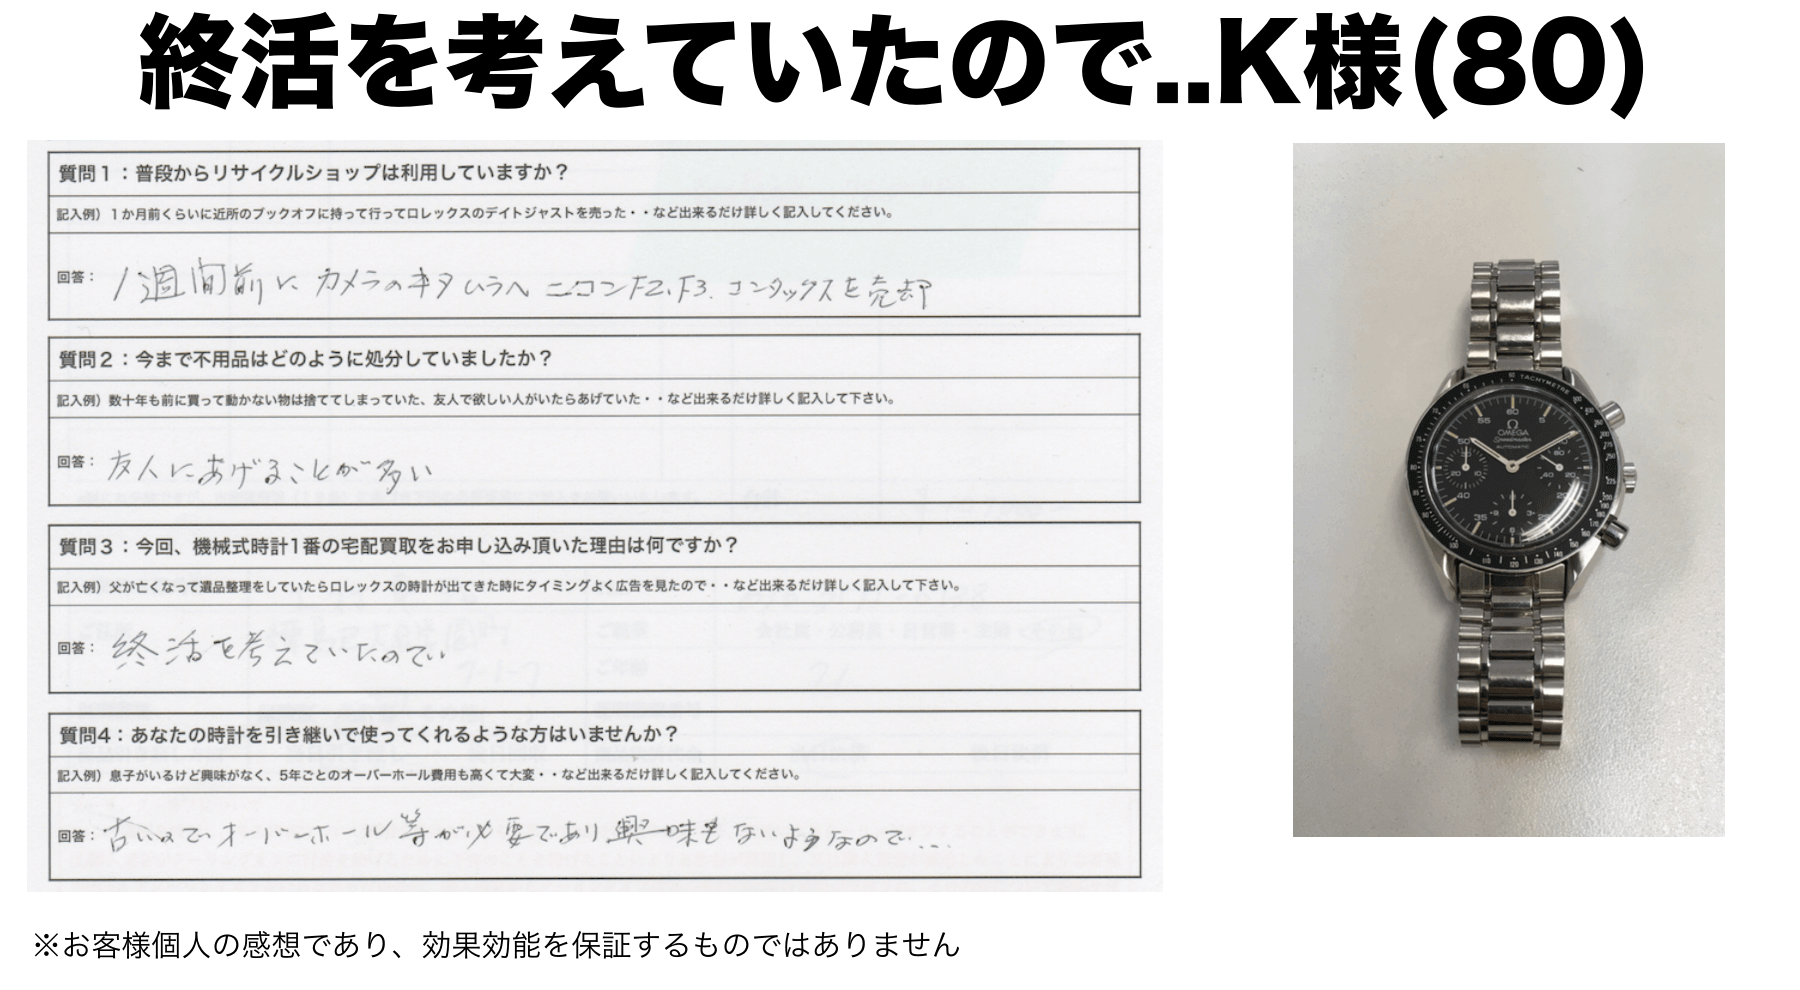 終活を考えていたので..K様(80)
質問1：普段からリサイクルショップは利用していますか？
記入例）1か月前くらいに近所のブックオフに持って行ってロレックスのデイトジャストを売った・・など出来るだけ詳しく記入してください。
回答： 1週間前に カメラのキタムラへ ニコンF2、F3、コンタックスを売却
質問2：今まで不用品はどのように処分していましたか？
記入例）数十年も前に買って動かない物は捨ててしまっていた、友人で欲しい人がいたらあげていた・・など出来るだけ詳しく記入して下さい。
回答： 友人にあげることが多い
質問3：今回、機械式時計1番の宅配買取をお申し込み頂いた理由は何ですか？
記入例）父が亡くなって遺品整理をしていたらロレックスの時計が出てきた時にタイミングよく広告を見たので・・など出来るだけ詳しく記入して下さい。
回答： 終活を考えていたので
質問4：あなたの時計を引き継いで使ってくれるような方はいませんか？
記入例）息子がいるけど興味がなく、5年ごとのオーバーホール費用も高くて大変・・など出来るだけ詳しく記入してください。
回答： 古いのでオーバーホール等が必要であり興味もないようなので....
TACHYMETRE
60
55
5
Ω
OMEGA
Speedmaster
AUTOMATIC
50
40
35
※お客様個人の感想であり、効果効能を保証するものではありません